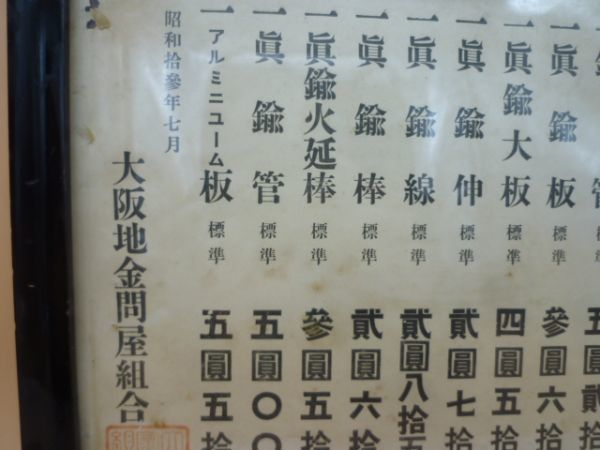 一眞鍮板標準參圓六
一眞鍮大板標準四圓五拾
一眞鍮伸標準貳圓七拾
一眞鍮線標準貳圓八拾五
一眞鍮棒標準貳圓六拾
一眞鍮火延棒標準參圓五拾
一眞鍮管標準五圓〇〇
一アルミニューム板標準五圓五拾
昭和拾參年七月
大阪地金問屋組合